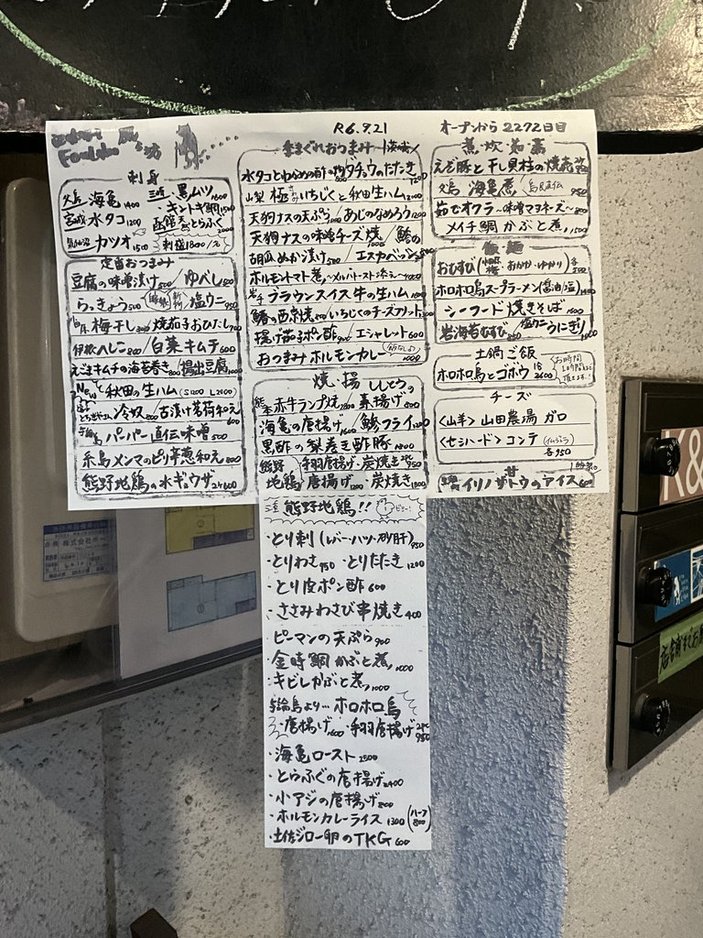 R6.9.21
オープンから2272日目
刺身
海亀 1400
黒ムツ 1600
宮城 水タコ 1200
キントキ鯛 1500
とらふぐ
気仙沼 カツオ 1500
刺盛1800/人
定番おつまみ
豆腐の味噌漬け 500/ゆべし 500
らっきょう 500
塩ウニ 950
梅干し/焼茄子おひたし 700
ヘしこ/白菜キムチ 600
えごまキムチの海苔巻き/揚出豆腐
New 秋田の生ハム (S1200 L2200)
冷奴 古漬け茗荷和え 600
パーパー直伝味噌 500
糸島メンマのピリ辛葱和え 800
熊野地鶏の水ギョウザ
きまぐれおつまみ
タチウオのたたき 1200
山梨 極 いちじくと秋田生ハム
天狗ナスの天ぷら/あじのなめろう 1200
天狗ナスの味噌チーズ焼/鯵の
胡瓜ぬか漬け 500/エスカベッシュ
ホルモントマト煮〜メルバトースト添え〜
岩手 ブラウンスイス牛の生ハム 1600
鰆の西京焼/いちじくのチーズフリット
揚げ茄子ポン酢/エシャレット 600
おつまみホルモンカレー(飯なし) 1000
焼・揚
ししとうの
赤牛ランプ焼/素揚げ 800
海亀の唐揚げ/鯵フライ
黒酢の梨巻き酢豚 1800
熊野 手羽唐揚げ・炭焼き 2P 950
地鶏 唐揚げ 1200 炭焼き 1800
煮・炊・岩・蒸
えぞ豚と干し貝柱の焼売
海亀煮 950
茹でオクラ〜味噌マヨネーズ〜
メイチ鯛かぶと煮 1500
飯麺
おむすび(梅 おかか・ゆかり)
ホロホロ鳥スープラーメン(醤油/塩)
シーフード焼きそば
岩海苔むすび/塩ウニおにぎり
土鍋ご飯
ホロホロ鳥とゴボウ
チーズ
〈山羊〉山田農場 ガロ
〈セミハード〉コンテ
各950
甘
イリノサトウのアイス 600
熊野地鶏!!
・とり刺(レバー・ハツ・砂肝) 950
・とりわさ 950 ・とりたたき 1200
・とり皮ポン酢 600
・ささみわさび串焼き 400
・ピーマンの天ぷら 900
・金時鯛かぶと煮 1000
・キビレかぶと煮 1000
与論島より…ホロホロ鳥
・唐揚げ 1600 ・手羽唐揚げ 2P 950
・海亀ロースト 2500
・とらふぐの唐揚げ 2400
・小アジの唐揚げ 800
・ホルモンカレーライス 1300 (ハーフ 800)
・土佐ジロー卵のTKG 600
K&